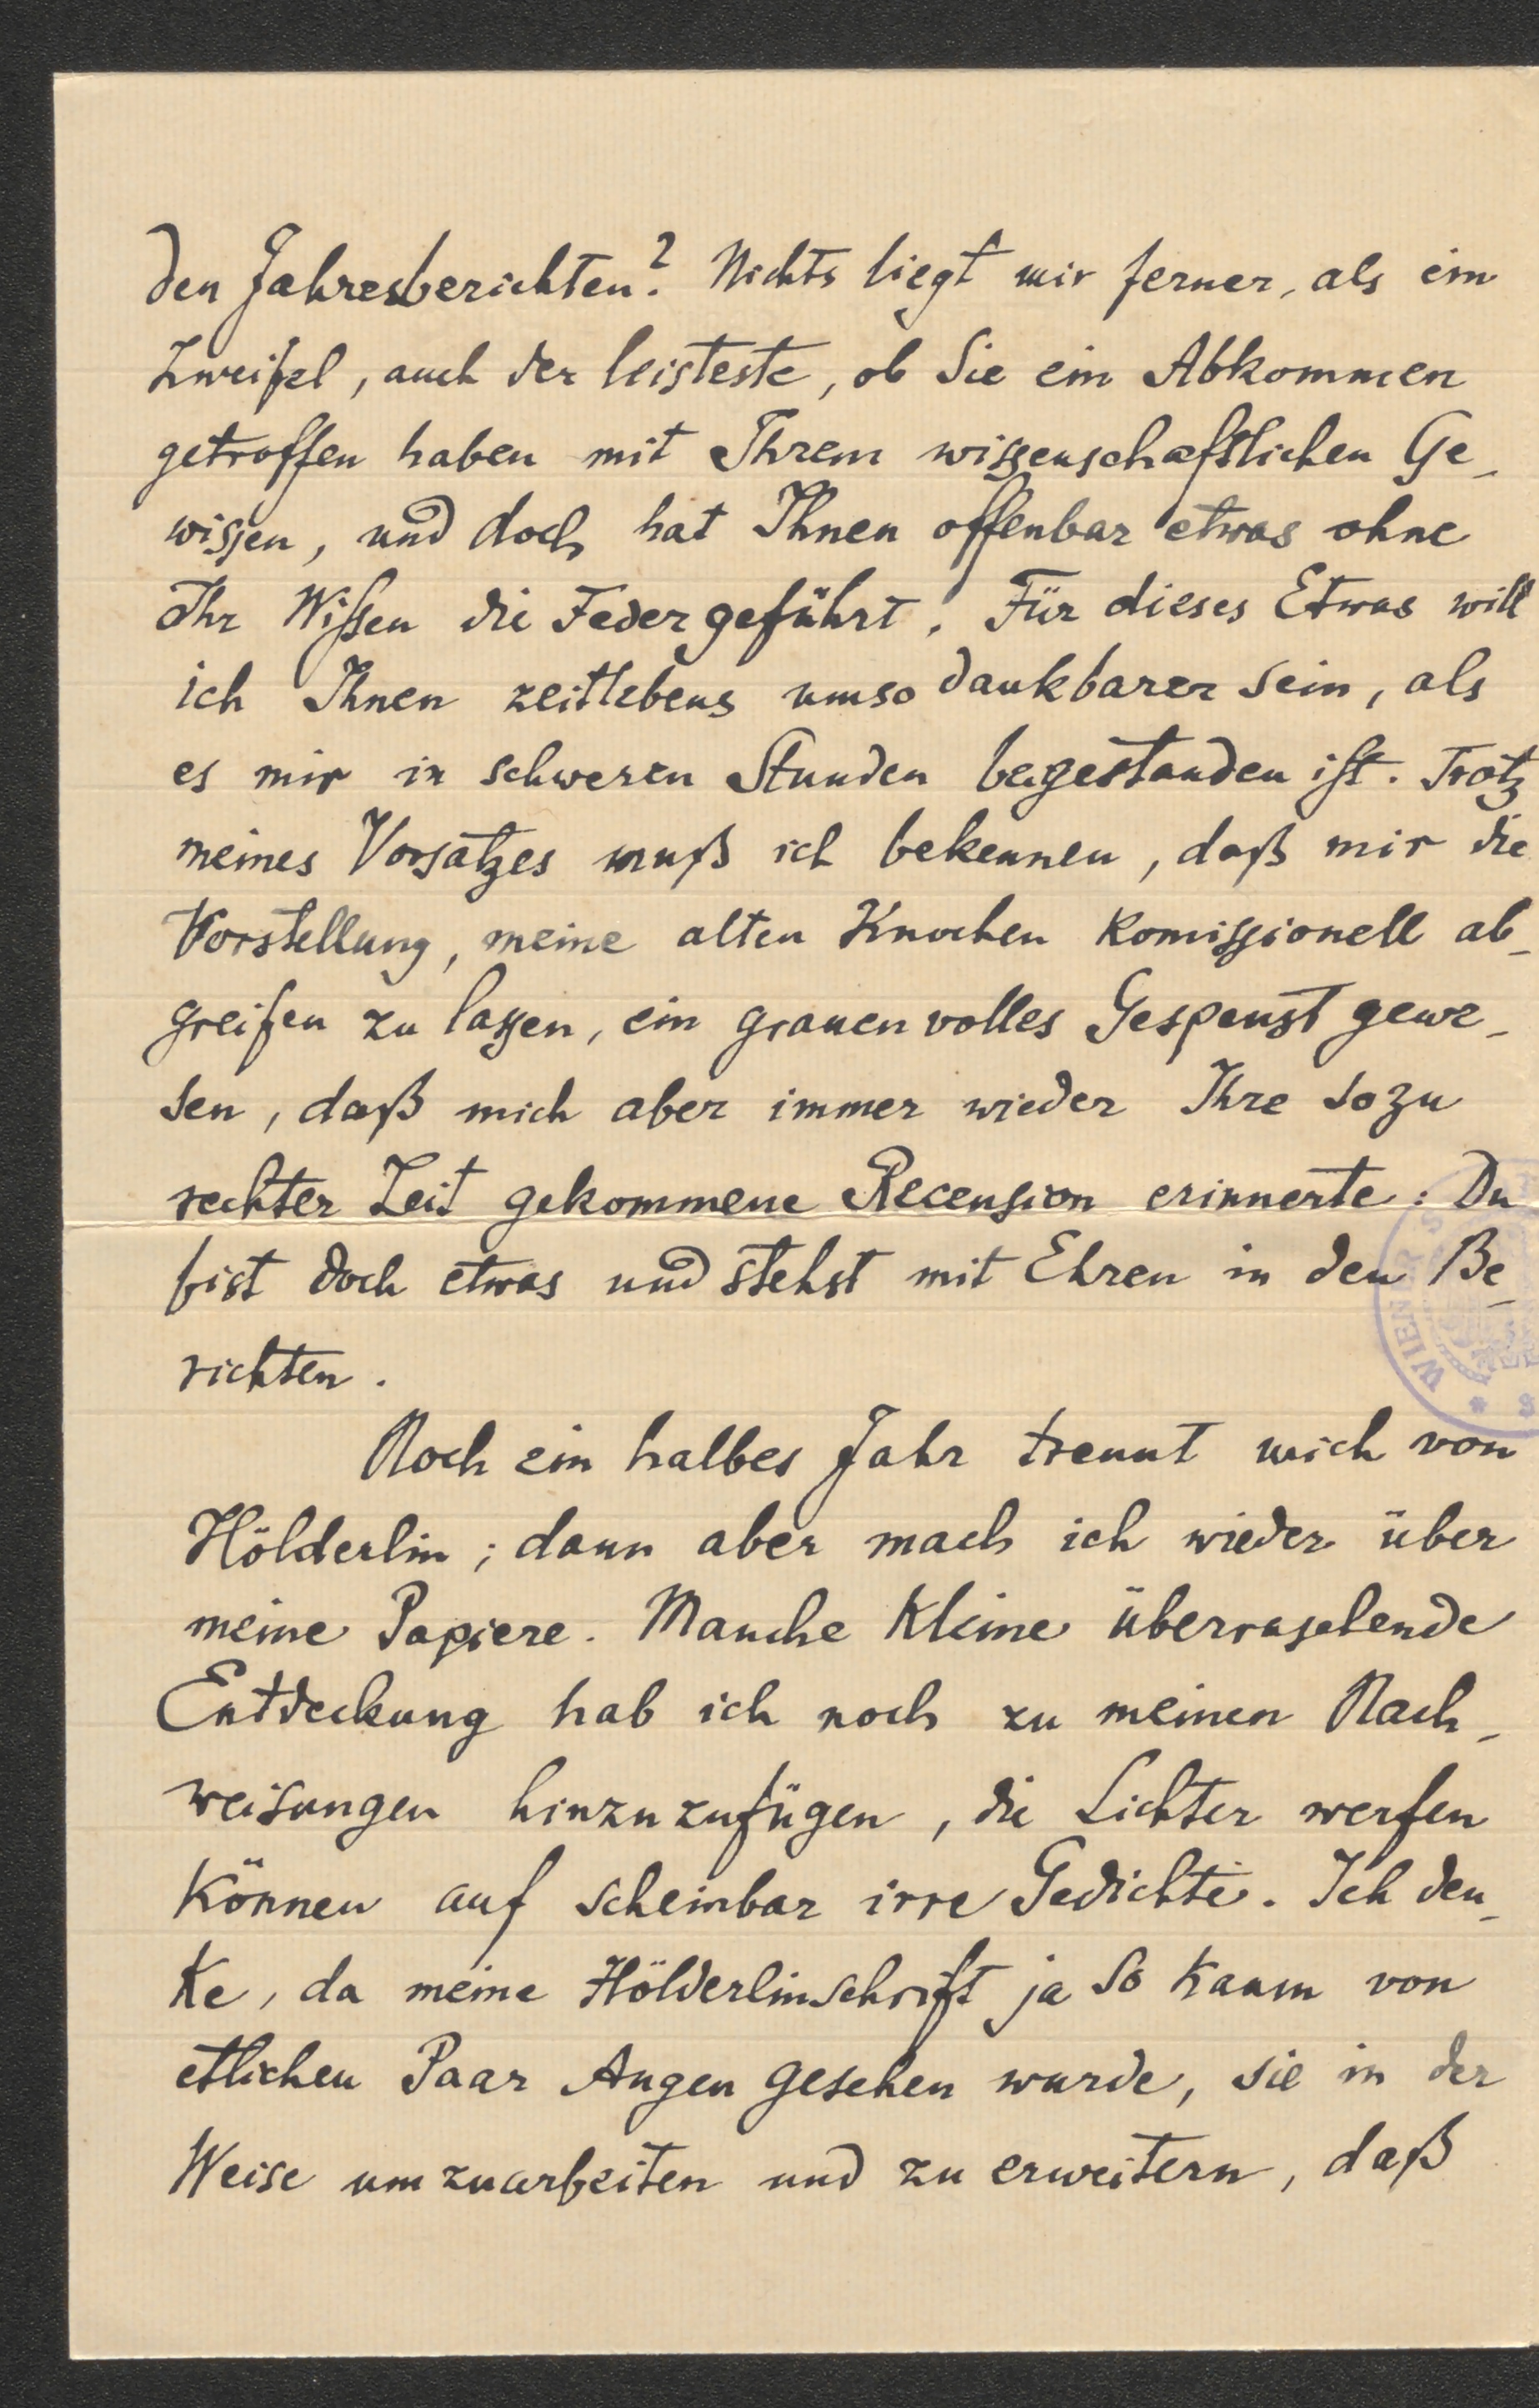 den Jahresberichten? Nichts liegt mir ferner, als ein
Zweifel, auch der leisteste, ob Sie ein Abkommen
getroffen haben mit Ihrem wissenschaftlichen Ge-
wissen, und doch hat Ihnen offenbar etwas ohne
Ihr Wissen die Feder geführt. Für dieses Etwas will
ich Ihnen zeitlebens umso dankbarer sein, als
es mir in schweren Stunden beigestanden ist. Trotz
meines Vorsatzes muß ich bekennen, daß mir die
Vorstellung, meine alten Knochen komissionell ab-
greifen zu lassen, ein grauenvolles Gespenst gewe-
sen, daß mich aber immer wieder Ihre so zu
rechter Zeit gekommene Recension erinnerte: Du
bist doch etwas und stehst mit Ehren in den Be-
richten.
Noch ein halbes Jahr trennt mich von
Hölderlin; dann aber mach ich wieder über
meine Papiere. Manche kleine überraschende
Entdeckung hab ich noch zu meinen Nach-
weisungen hinzuzufügen, die Lichter werfen
können auf scheinbar irre Gedichte. Ich den-
ke, da meine Hölderlinschrift ja so kaum von
etlichen Paar Augen gesehen wurde, sie in der
Weise umzuarbeiten und zu erweitern, daß
WIENER